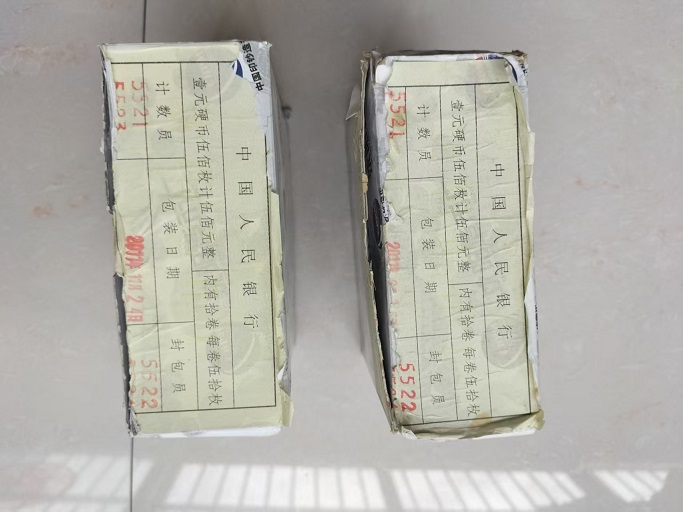 中国人民银行
壹元硬币伍佰枚计伍佰元整 内有拾卷每卷伍拾枚
计数员 包装日期 封包员
5521 2011年11月24日 5522
5523
中国印钞造
中国人民银行
壹元硬币伍佰枚计伍佰元整 内有拾卷每卷伍拾枚
计数员 包装日期 封包员
5521 5522